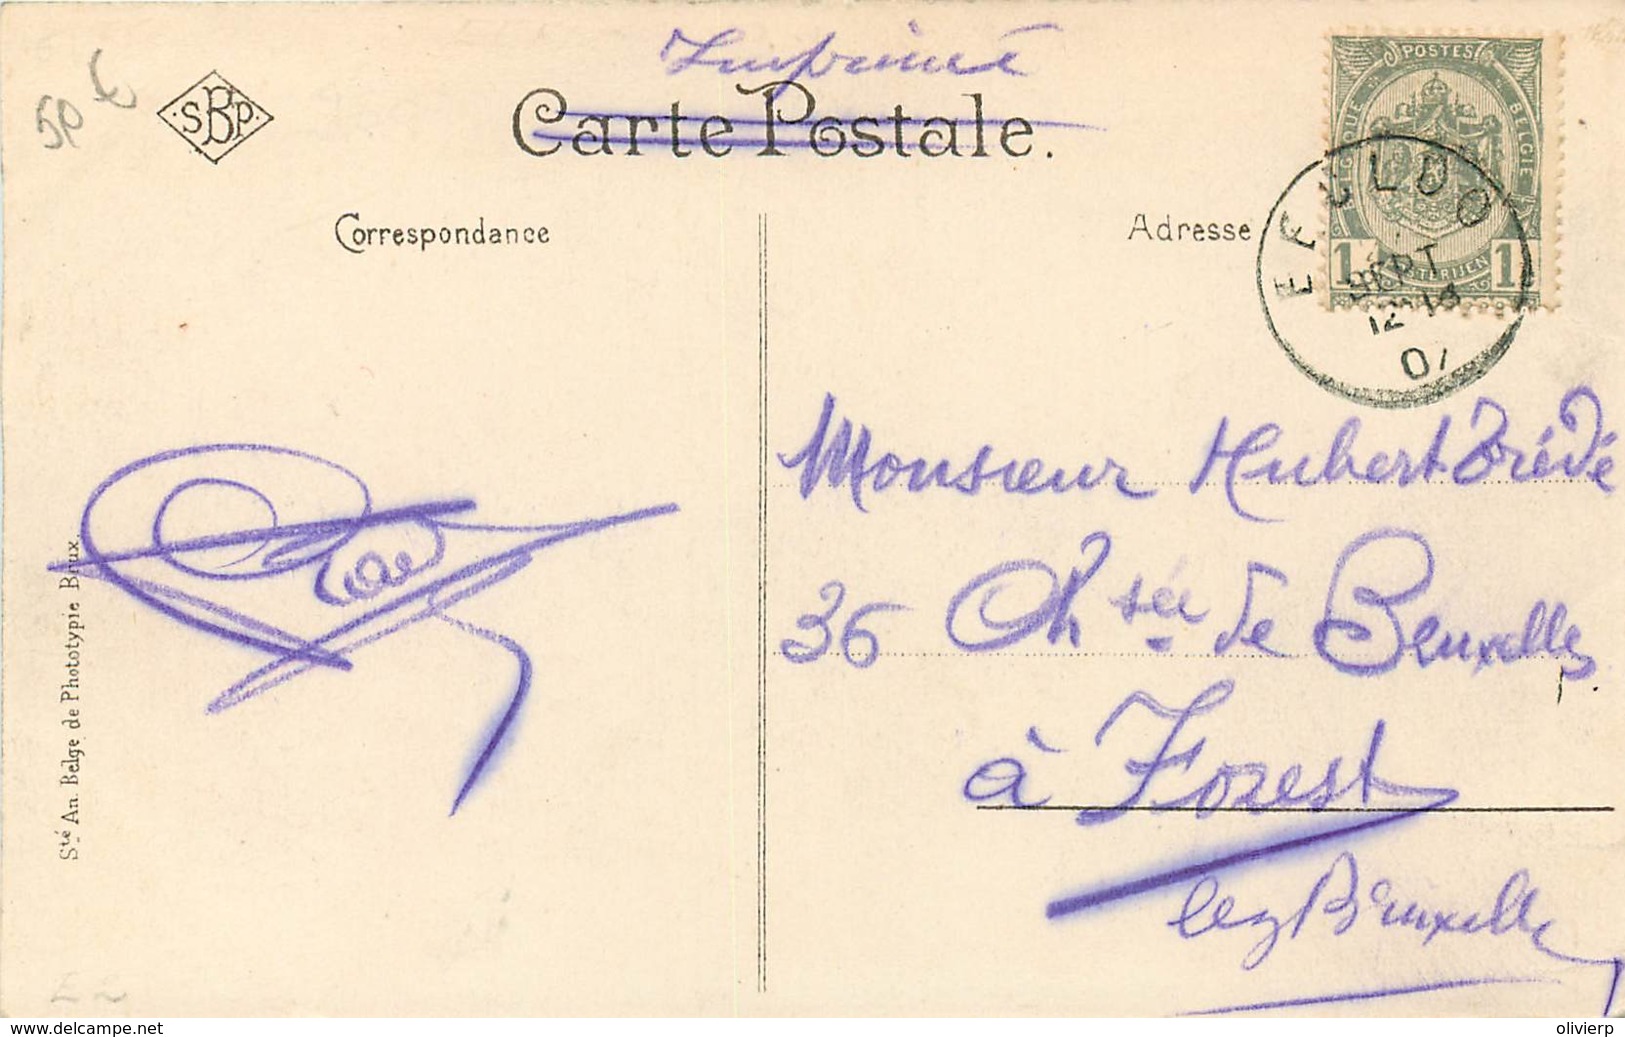 Imprimé
50 €
SBP
Carte Postale.
POSTES
BELGIQUE BELGIE
POSTERIJEN
1 1
EECLOO
SEPT
12
07
Correspondance
Adresse
Monsieur Hubert
36 Ch sée de Bruxelles
à Forest
lez Bruxelles
Sté An. Belge de Phototypie Brux.
www.delcampe.net
olivierp